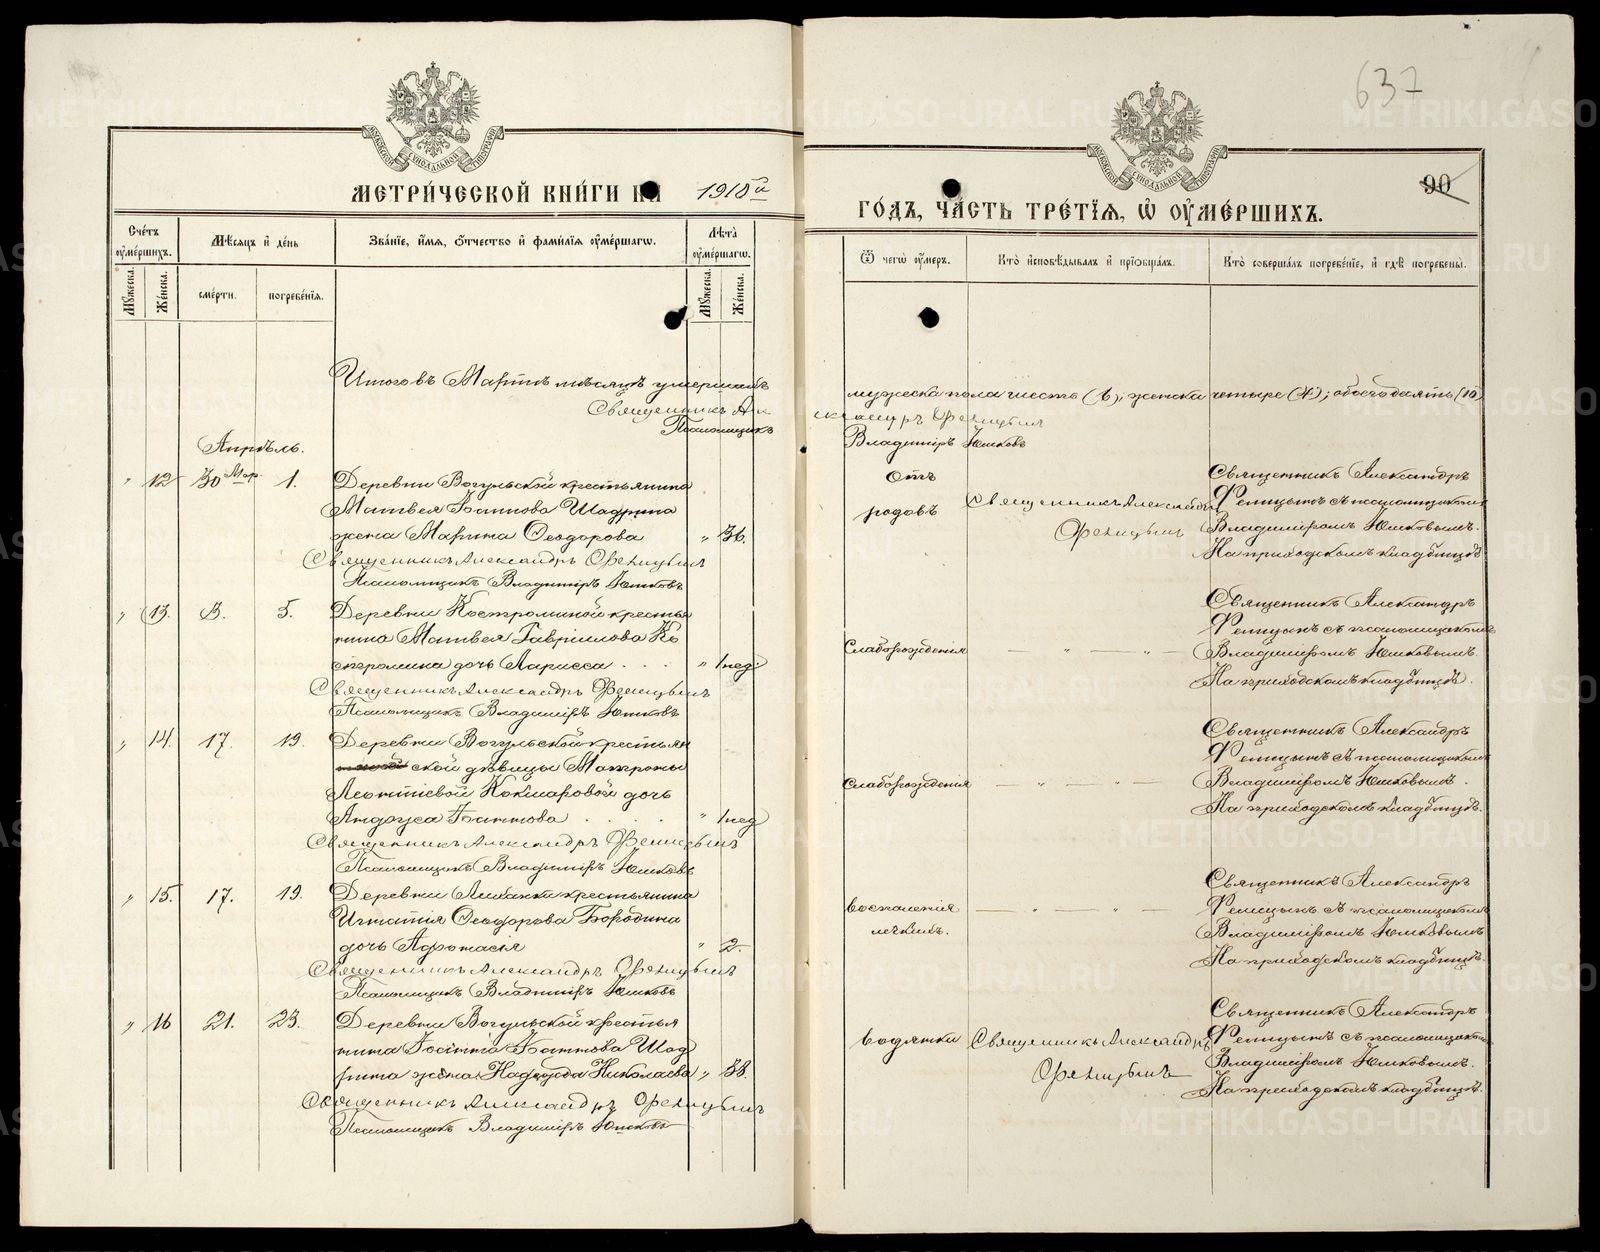 637
90
МЕТРИ́ЧЕСКОЙ КНИ́ГИ НА 1918й
ГО́ДЪ, ЧА́СТЬ ТРЕ́ТЇѦ, Ѡ҆ ОУ҆МЕ́РШИХЪ.
Сче́тъ оу҆ме́ршихъ.
Мꙋ́жеска.
Же́нска.
Мѣ́сѧцъ и҆ де́нь
сме́рти.
погребе́нїѧ.
Зва́нїе, и҆́мѧ, ѻ҆́тчество и҆ фами́лїѧ оу҆ме́ршагѡ.
Лѣ́та оу҆ме́ршагѡ.
Мꙋ́жеска.
Же́нска.
Ѿ чегѡ̀ оу҆́меръ.
Кто̀ и҆сповѣ́дывалъ и҆ прїѡбща́лъ.
Кто̀ соверша́лъ погребе́нїе, и҆ гдѣ̀ погребены̀.
Итого въ Мартѣ мѣсяцѣ умершихъ мужеска пола шесть (6); женска четыре (4); обоего десять (10)
Священникъ Александръ Феницынъ
Псаломщикъ Владимiръ Юшковъ
Апрѣль.
" 12 30 Мар. 1.
Деревни Вогульской крестьянина
Матвея Iоаннова Шадрина
жена Марина Ѳеодорова " 36.
Священникъ Александръ Феницынъ
Псаломщикъ Владимiръ Юшковъ
Отъ
родовъ
Священникъ Александръ
Феницынъ
Священникъ Александръ
Феницынъ съ псаломщикомъ
Владимiромъ Юшковымъ.
На приходскомъ кладбищѣ
" 13. 3. 5.
Деревни Костроминой крестья
нина Матвея Гаврiилова Ко
стромина дочь Лариса . . . " 1 нед.
Священникъ Александръ Феницынъ
Псаломщикъ Владимiръ Юшковъ
Слаборожденiя
— " — " —
Священникъ Александръ
Феницынъ съ псаломщикомъ
Владимiромъ Юшковымъ.
На приходскомъ кладбищѣ.
" 14. 17. 19.
Деревни Вогульской крестьян
ской дѣвицы Матроны
Леонтiевой Кокшаровой дочь
Iоаннова . . . . " 1 нед
Священникъ Александръ Феницынъ
Псаломщикъ Владимiръ Юшковъ
Слаборожденiя
— " — " —
Священникъ Александръ
Феницынъ съ псаломщикомъ
Владимiромъ Юшковымъ.
На приходскомъ кладбищѣ.
" 15. 17. 19.
Деревни крестьянина
Игнатiя Ѳеодорова Бородина
дочь Афонасiя " 2.
Священникъ Александръ Феницынъ
Псаломщикъ Владимiръ Юшковъ
воспаленiя
легкихъ.
— " — " —
Священникъ Александръ
Феницынъ съ псаломщикомъ
Владимiромъ Юшковымъ
На приходскомъ кладбищѣ.
" 16 21. 23.
Деревни Вогульской крестья
нина Iоаннова Шад
рина жена Надежда Николаева " 38.
Священникъ Александръ Феницынъ
Псаломщикъ Владимiръ Юшковъ
водянки
Священникъ Александръ
Феницынъ
Священникъ Александръ
Феницынъ съ псаломщикомъ
Владимiромъ Юшковымъ.
На приходскомъ кладбищѣ.
METRIKI.GASO-URAL.RU